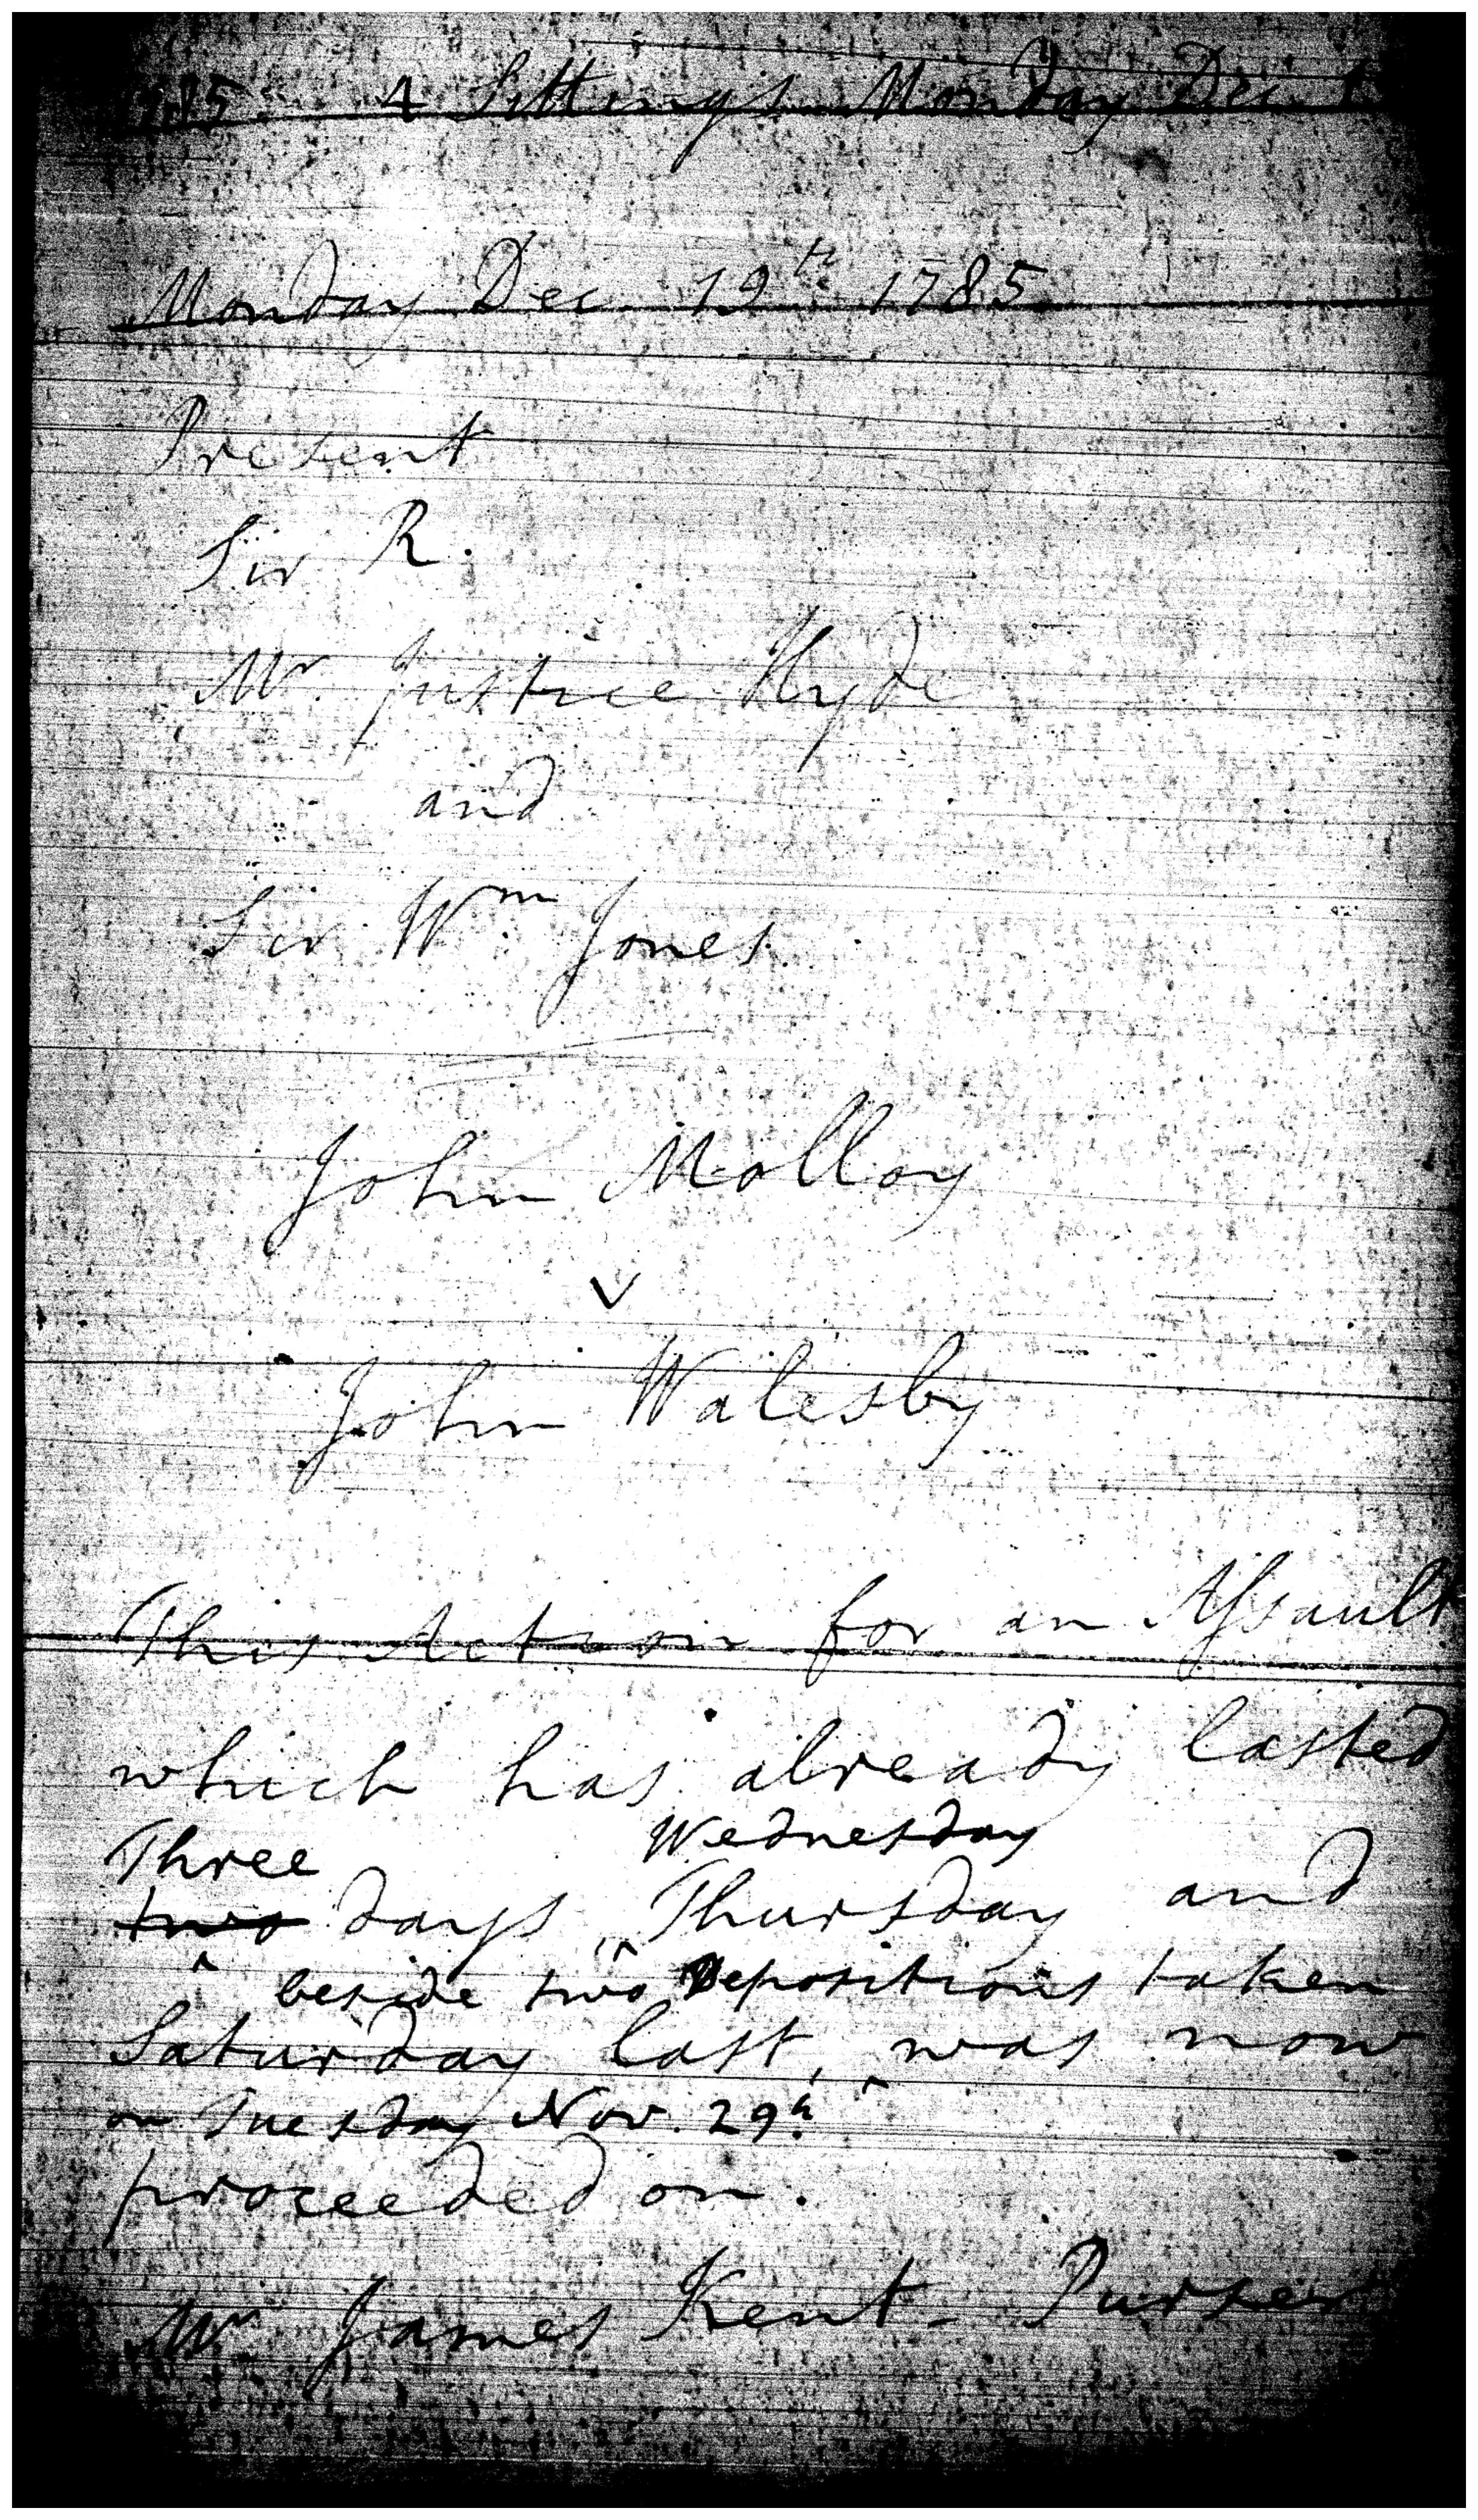 1785. 4 Sittings Monday Dec. 1
Monday Dec. 19th. 1785
Present
Sir R.
Mr. Justice Hyde
and
Sir Wm. Jones.
John Molloy
v
John Walesby
This Action for an Assault
which has already lasted
Three Wednesday
two days, Thursday and
beside two Depositions taken
Saturday last, was now
on Tuesday Nov. 29th.
proceeded on.
Mr James Kent - Purser